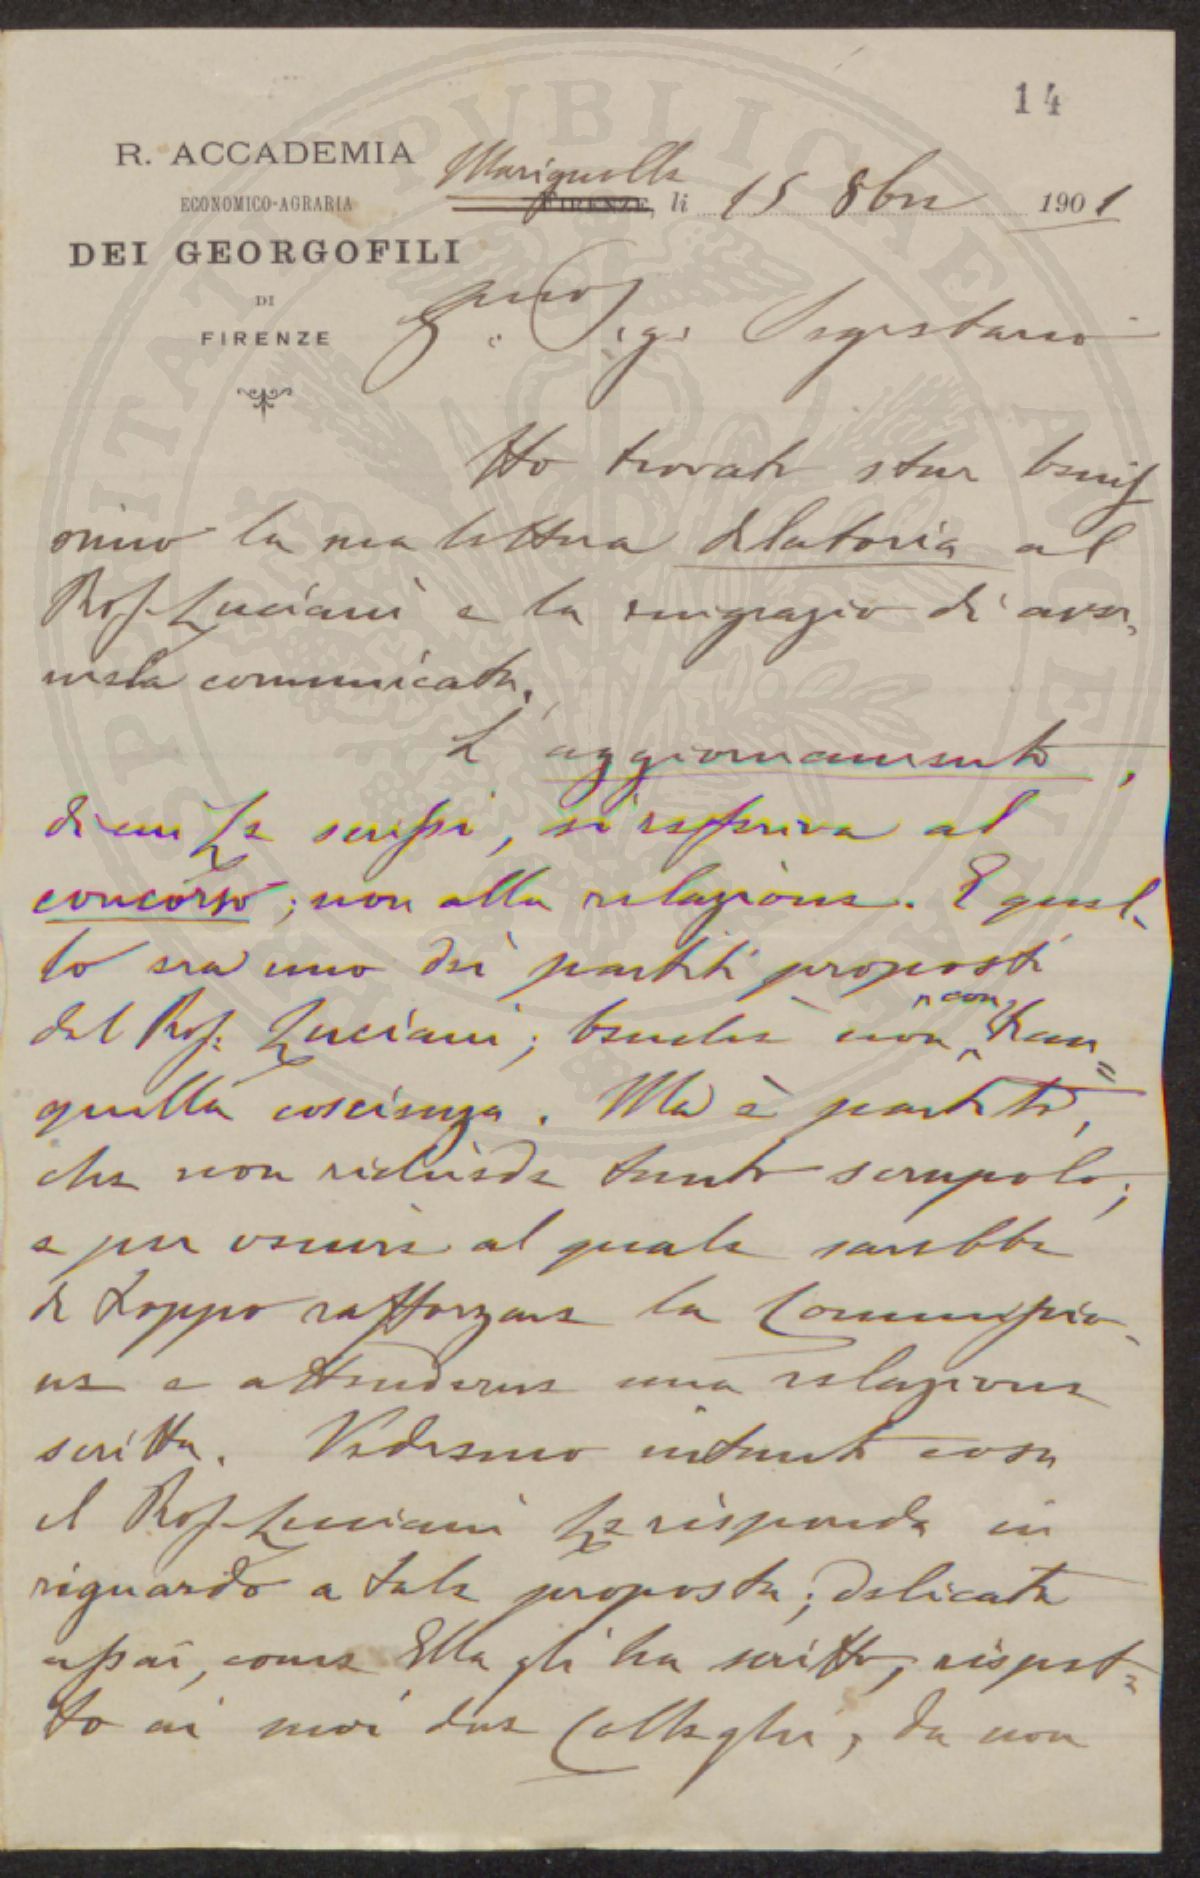 14
R. ACCADEMIA
ECONOMICO-AGRARIA
DEI GEORGOFILI
DI
FIRENZE
Marignolle
FIRENZE, li 15 8bre 1901
Sig. Segretario
Ho trovato star benis
simo la sua lettera dilatoria al
Prof. Luciani e la ringrazio di aver,
mela communicata.
L'aggiornamento,
di cui Le scrissi, si riferiva al
concorso; non alla relazione. E quel-
lo era uno dei partiti proposti
dal Prof. Luciani; benchè non con tran=
quilla coscienza. Ma è partito,
che non richiede tanto scrupolo;
e per venire al quale sarebbe
di troppo rafforzare la Commissio-
ne e attenderne una relazione
scritta. Vedremo intanto cosa
il Prof. Luciani Le risponda in
riguardo a tale proposta; delicata
assai, come Ella gli ha scritto, rispet=
to ai suoi due Colleghi, da non